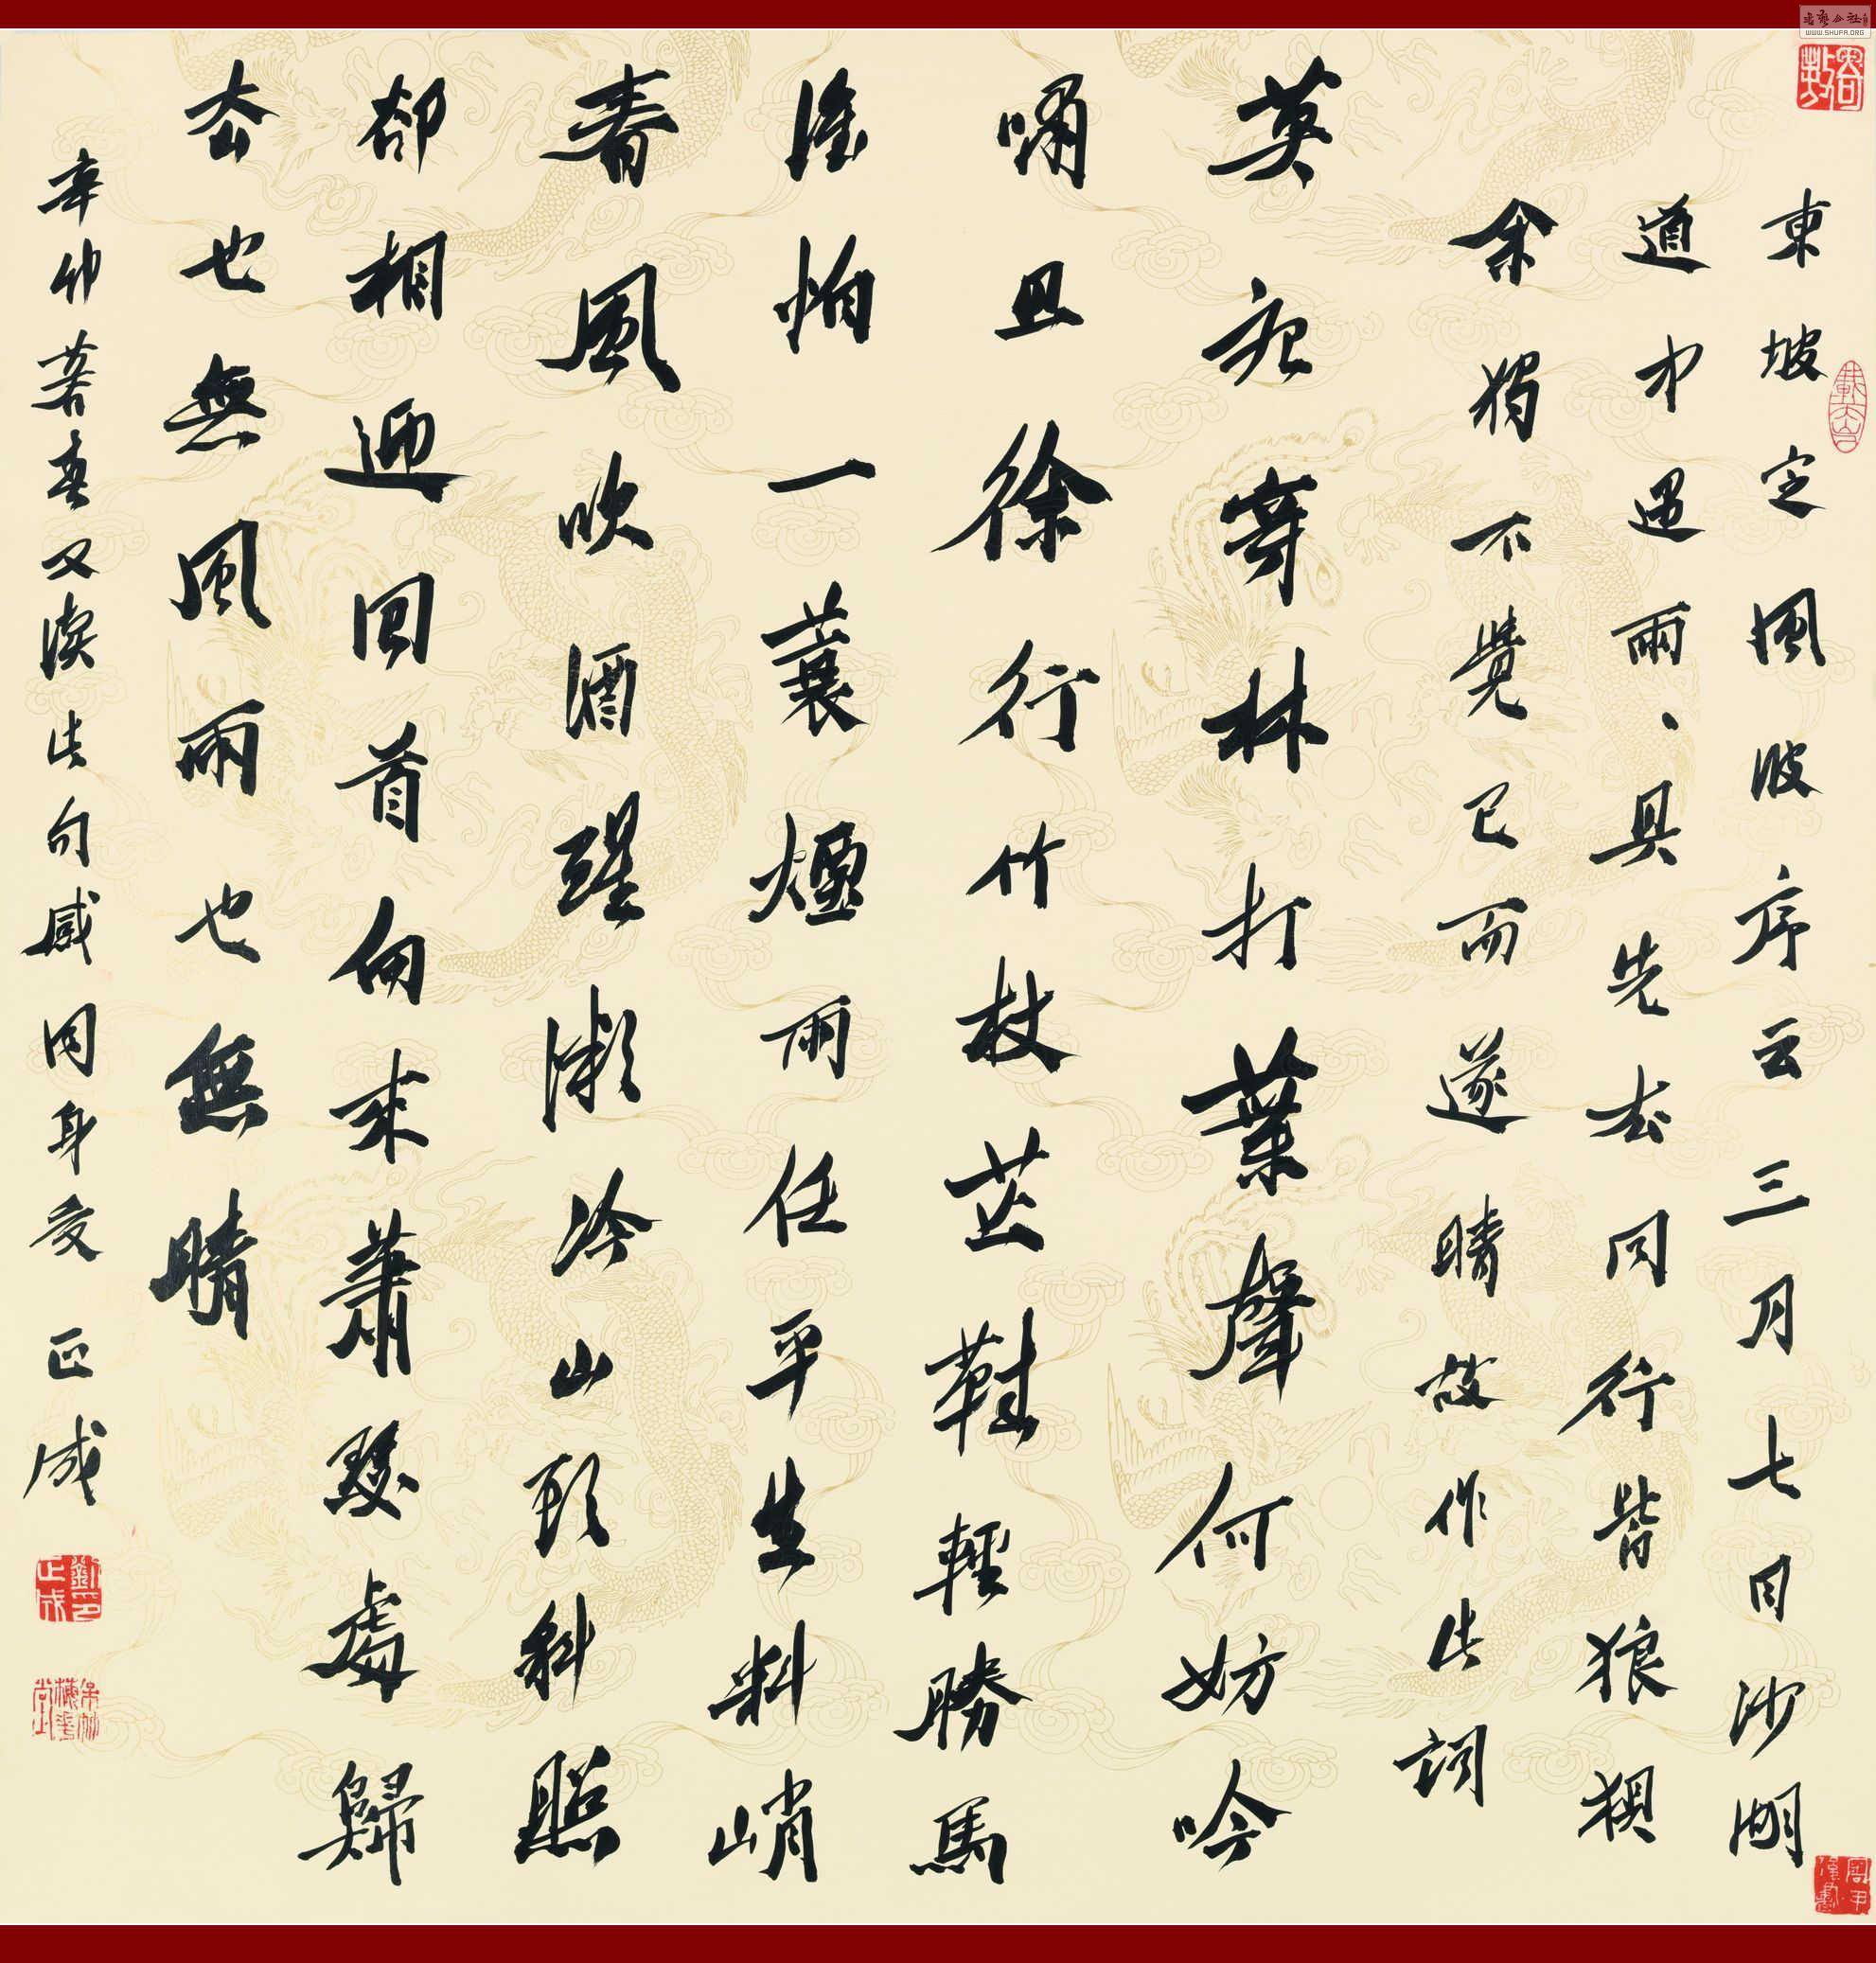 東坡定風波序云三月七日沙湖
道中遇雨、具先去同行皆狼狽
余獨不覺已而遂晴故作此詞
莫聽穿林打葉聲何妨吟
嘯且徐行竹杖芒鞋輕勝馬
誰怕一蓑煙雨任平生料峭
春風吹酒醒微冷山頭斜照
卻相迎回首向來蕭瑟處歸
去也無風雨也無晴
辛卯暮春又讀此句感同身受正成
書法公社
WWW.SHUFA.ORG
劉正成印